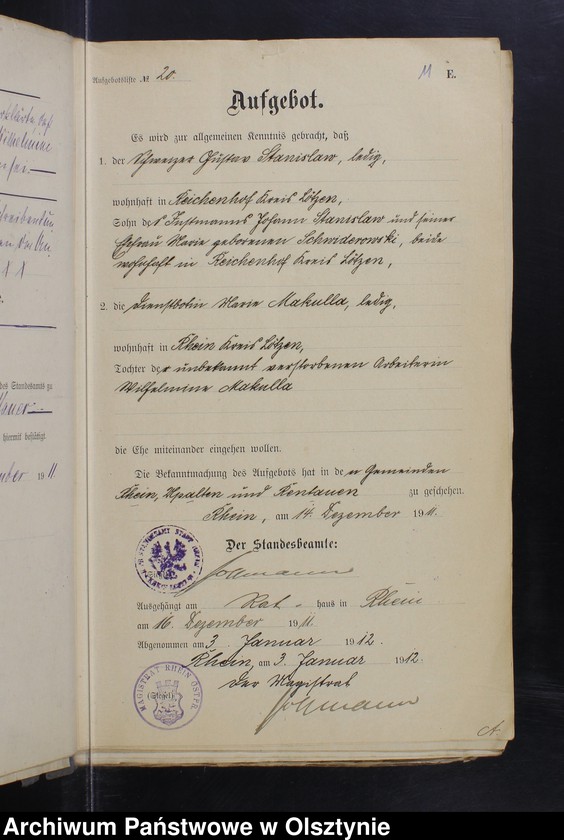 Aufgebotsliste № 20.
11 E.
Aufgebot.
Es wird zur allgemeinen Kenntnis gebracht, daß
1. der Schweizer Gustav Stanislaw, ledig,
wohnhaft in Reichenhof Kreis Lötzen,
Sohn des Instmanns Johann Stanislaw und seiner
Ehefrau Marie geborenen Schwiderowski, beide
wohnhaft in Reichenhof Kreis Lötzen,
2. die Dienstbotin Marie Makulla, ledig,
wohnhaft in Rhein Kreis Lötzen,
Tochter der unbekannt verstorbenen Arbeiterin
Wilhelmine Makulla
die Ehe miteinander eingehen wollen.
Die Bekanntmachung des Aufgebots hat in den Gemeinden
Rhein, Upalten und Kentauen zu geschehen.
Rhein, am 14. Dezember 1911.
Der Standesbeamte:
Ausgehängt am Rat-haus in Rhein
am 16. Dezember 1911.
Abgenommen am 3. Januar 1912.
Rhein, am 3. Januar 1912.
Der Magistrat
(Siegel)
MAGISTRAT RHEIN OSTPR.
des Standesamts zu
hiermit bestätigt
1911
Archiwum Państwowe w Olsztynie